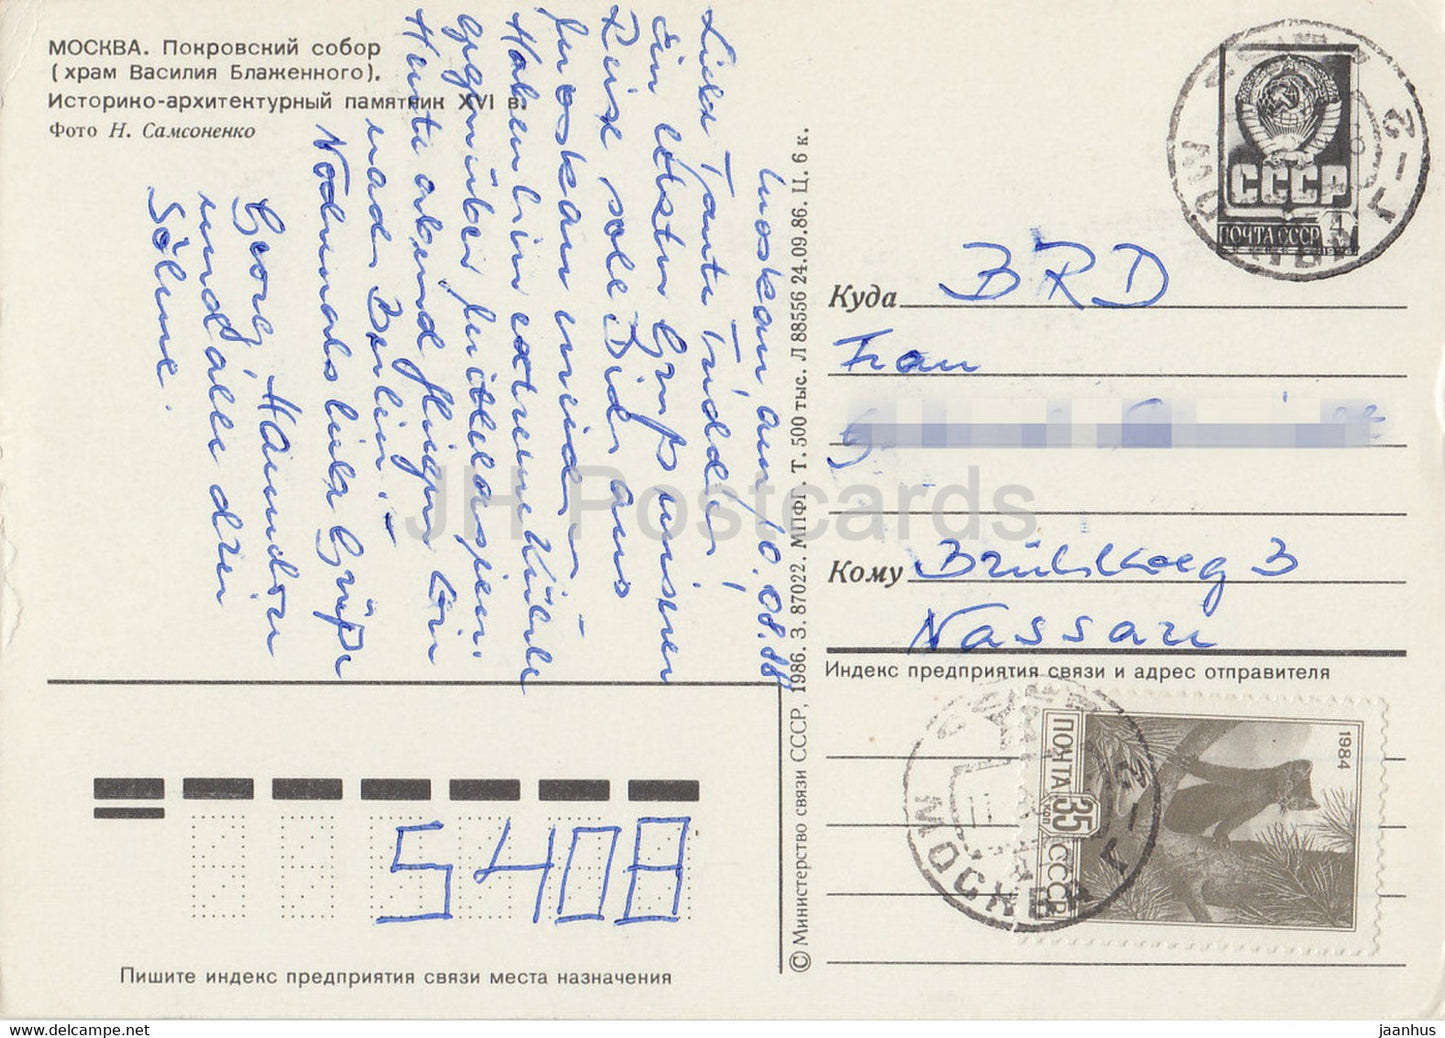 МОСКВА. Покровский собор
(храм Василия Блаженного).
Историко-архитектурный памятник XVI в.
Фото Н. Самсоненко
Moskau, am 10.08.88
Liebe Tante Truddel!
Ein letzter Gruß unserer
Reise soll Dich aus
Moskau
Haben hier extreme Kühle
gegenüber Mittelasien.
Heute abend fliegen wir
nach Berlin.
Nochmals liebe Grüße
Georg, Hannelore
und alle drei
Söhne.
© Министерство связи СССР, 1986. З. 87022. МПФГ. Т. 500 тыс. Л 88556 24.09.86. Ц. 6 к.
СССР
4
ПОЧТА СССР
МОСКВА
Куда BRD
Frau
Кому Brühlweg 3
Nassau
Индекс предприятия связи и адрес отправителя
1984
ПОЧТА 35 коп СССР
МОСКВА
5408
Пишите индекс предприятия связи места назначения
JH Postcards
https://www.hippostcard.com/
jaanhus